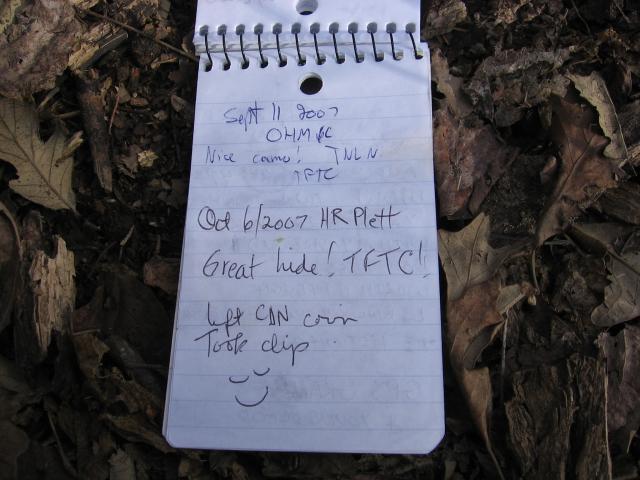 Sept 11 2007
OHMIC
Nice camo! TNLN
TFTC
Oct 6/2007 HR Plett
Great hide! TFTC!!
left CDN coin
Took clip